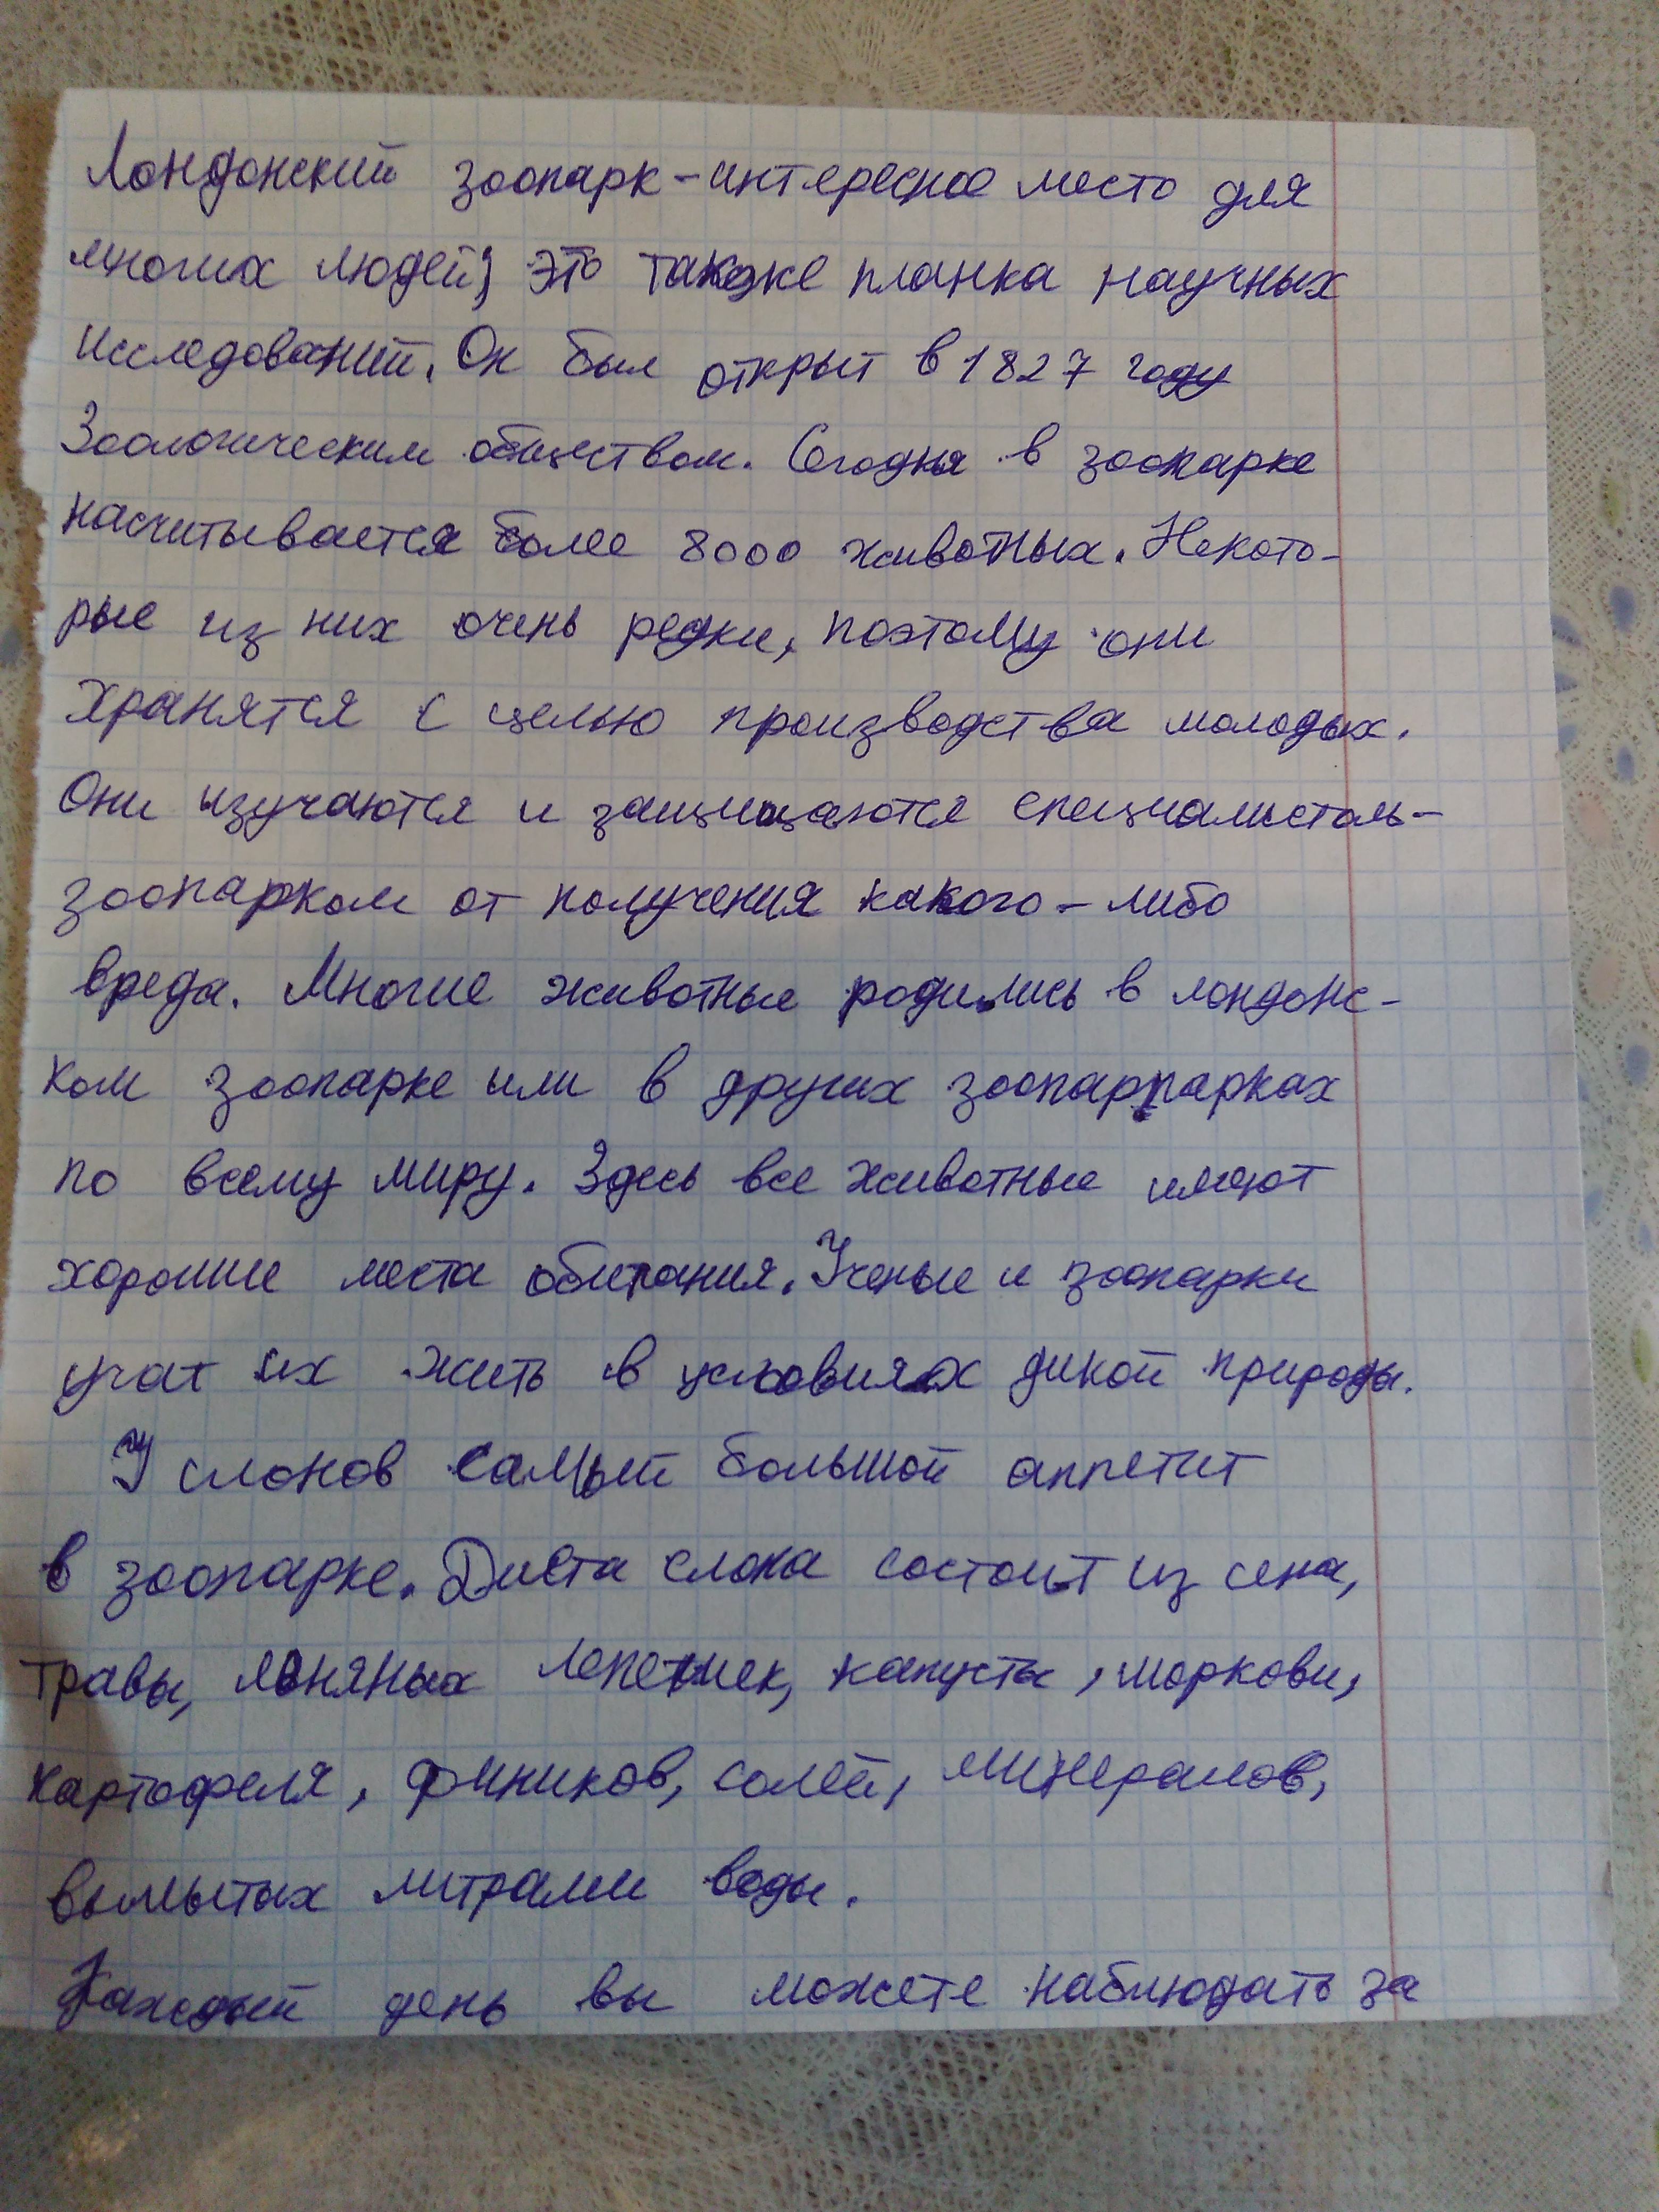 Лондонский зоопарк - интересное место для
многих людей, это также планка научных
исследований. Он был открыт в 1827 году
Зоологическим обществом. Сегодня в зоопарке
насчитывается более 8000 животных. Некото-
рые из них очень редки, поэтому они
хранятся с целью производства молодых.
Они изучаются и защищаются специалисталь-
зоопарком от получения какого-либо
вреда. Многие животные родились в лондонс-
ком зоопарке или в других зоопарпарках
по всему миру. Здесь все животные имеют
хорошие места обитания. Ученые и зоопарки
учат их жить в условиях дикой природы.
У слонов самый большой аппетит
в зоопарке. Диета слона состоит из сена,
травы, льняных лепешек, капусты, моркови,
картофеля, фиников, солей, минералов,
вымытых литрами воды.
Каждый день вы можете наблюдать за